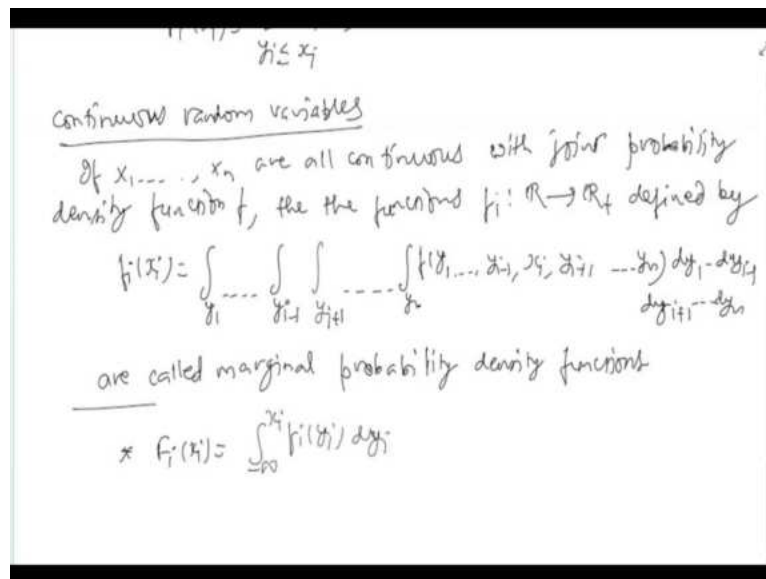 yi ≤ xi
continuous random variables
If X1....., Xn are all continuous with joint probability
density function f, the the functions fi: ℝ→ℝ+ defined by
fi(xi) = ∫y1 .... ∫yi-1 ∫yi+1 ..... ∫yn f(y1...., yi-1, xi, yi+1 ....yn) dy1..dyi-1
dyi+1....dyn
are called marginal probability density functions
* Fi(xi) = ∫-∞^xi fi(yi) dyi